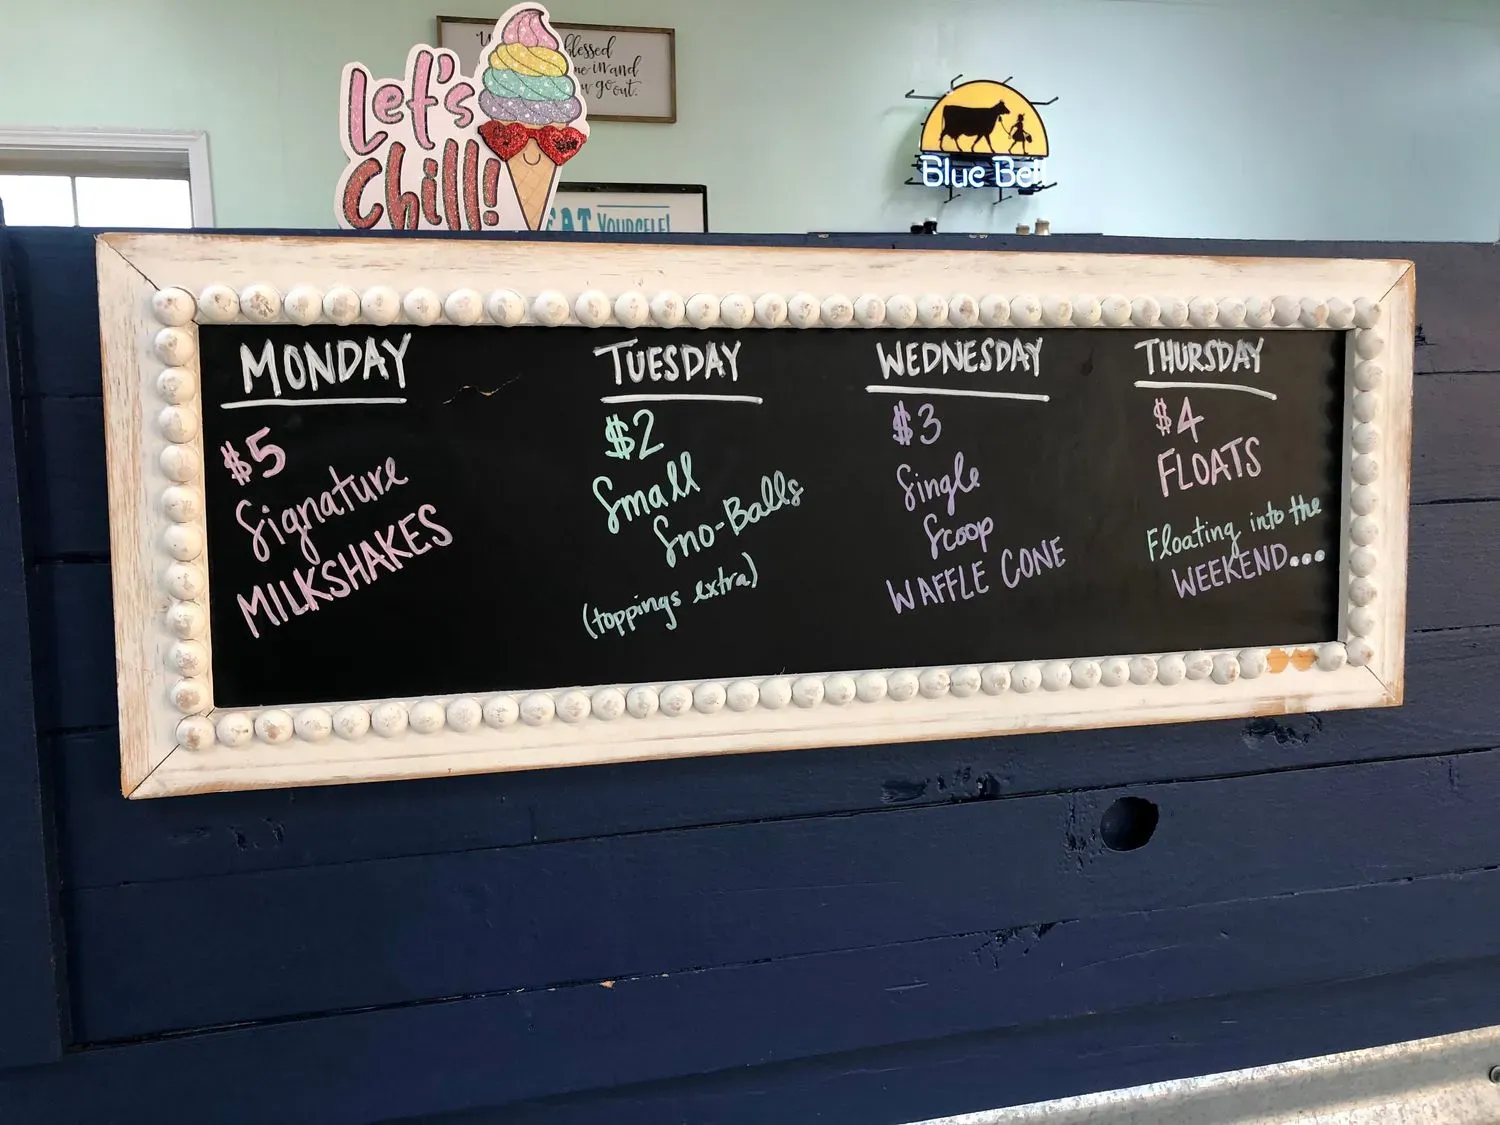 Let's
Chill!
blessed
in and
go out.
EAT YOURSELF!
Blue Bell
MONDAY
$5
Signature
MILKSHAKES
TUESDAY
$2
Small
Sno-Balls
(toppings extra)
WEDNESDAY
$3
Single
Scoop
WAFFLE CONE
THURSDAY
$4
FLOATS
Floating into the
WEEKEND...